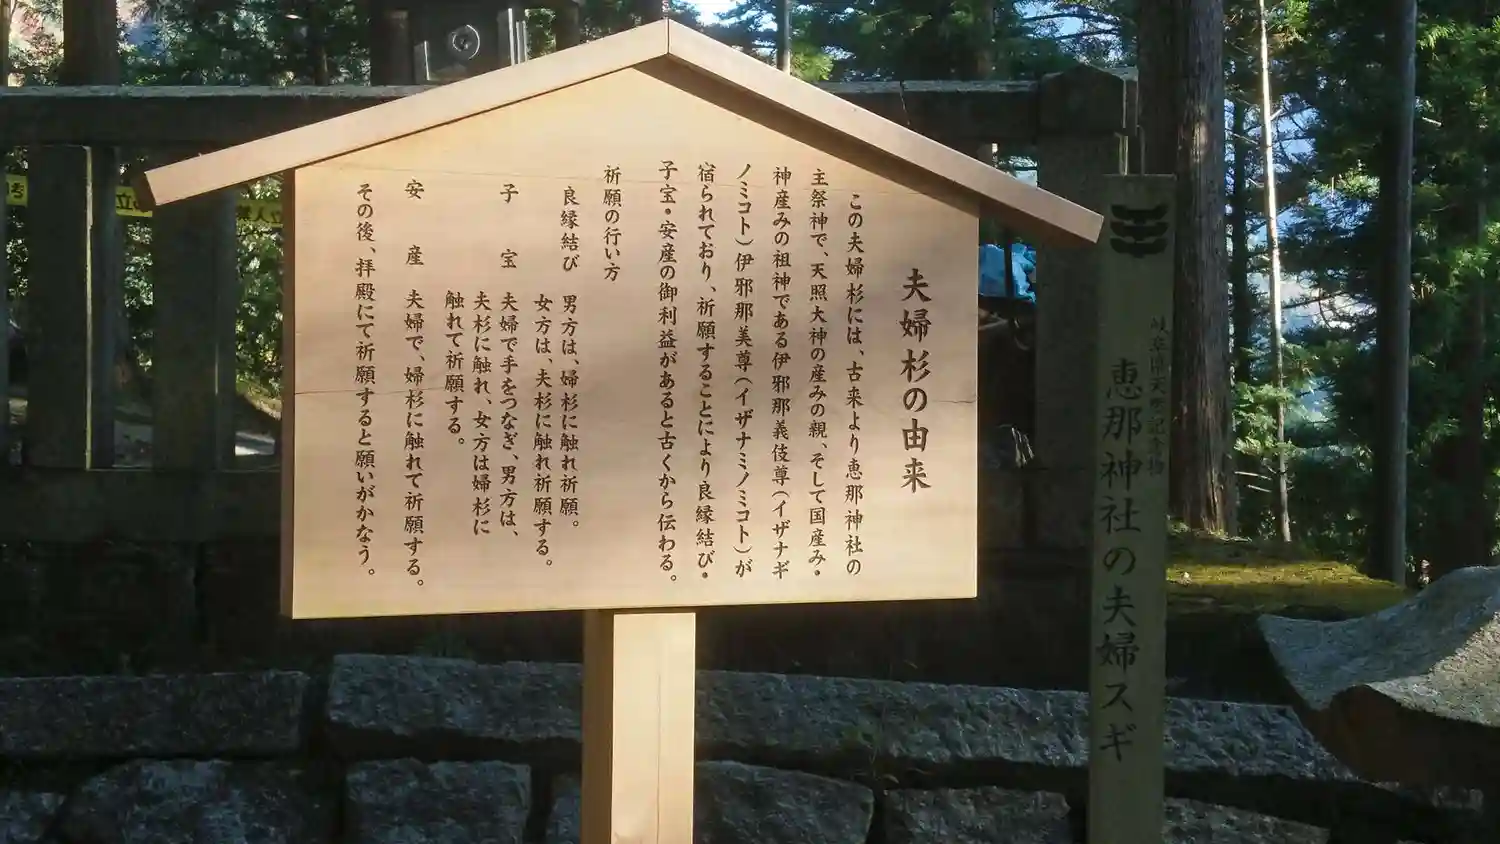 夫婦杉の由来
この夫婦杉には、古来より恵那神社の
主祭神で、天照大神の産みの親、そして国産み・
神産みの祖神である伊邪那義伎尊(イザナギ
ノミコト)伊邪那美尊(イザナミノミコト)が
宿られており、祈願することにより良縁結び・
子宝・安産の御利益があると古くから伝わる。
祈願の行い方
良縁結び 男方は、婦杉に触れ祈願。
女方は、夫杉に触れ祈願する。
子 宝 夫婦で手をつなぎ、男方は、
夫杉に触れ、女方は婦杉に
触れて祈願する。
安 産 夫婦で、婦杉に触れて祈願する。
その後、拝殿にて祈願すると願いがかなう。
岐阜県天然記念物
恵那神社の夫婦スギ